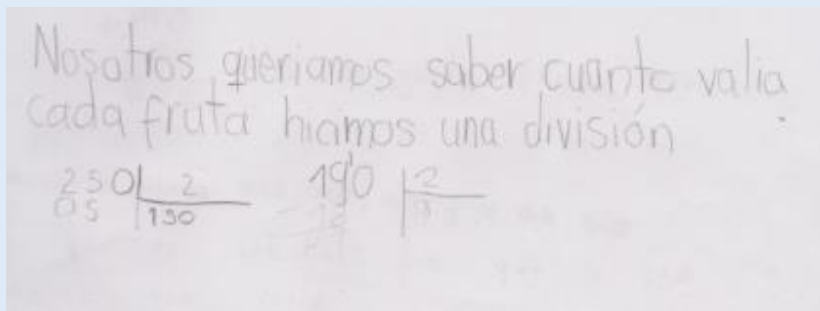 Nosotros queriamos saber cuanto valia
cada fruta hicimos una división
250 2 190 2
05 130 9